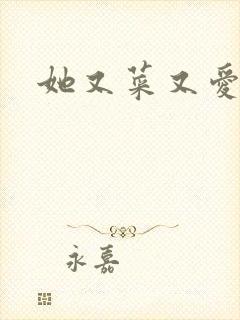 她又菜又愛
永嘉